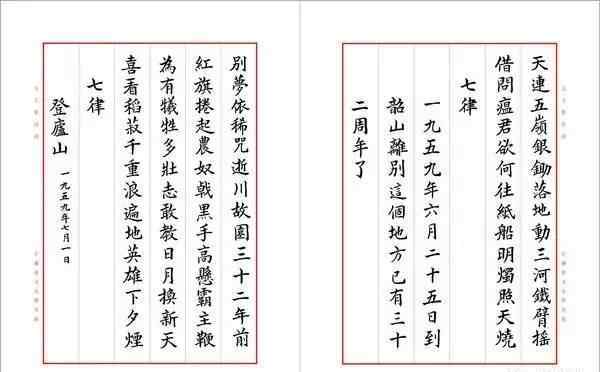 天連五嶺銀鋤落地動三河鐵臂搖
借問瘟君欲何往紙船明燭照天燒
七律
一九五九年六月二十五日到
韶山離別這個地方已有三十
二周年了
別夢依稀咒逝川故園三十二年前
紅旗捲起農奴戟黑手高懸霸主鞭
為有犧牲多壯志敢教日月換新天
喜看稻菽千重浪遍地英雄下夕煙
七律
登廬山 一九五九年七月一日